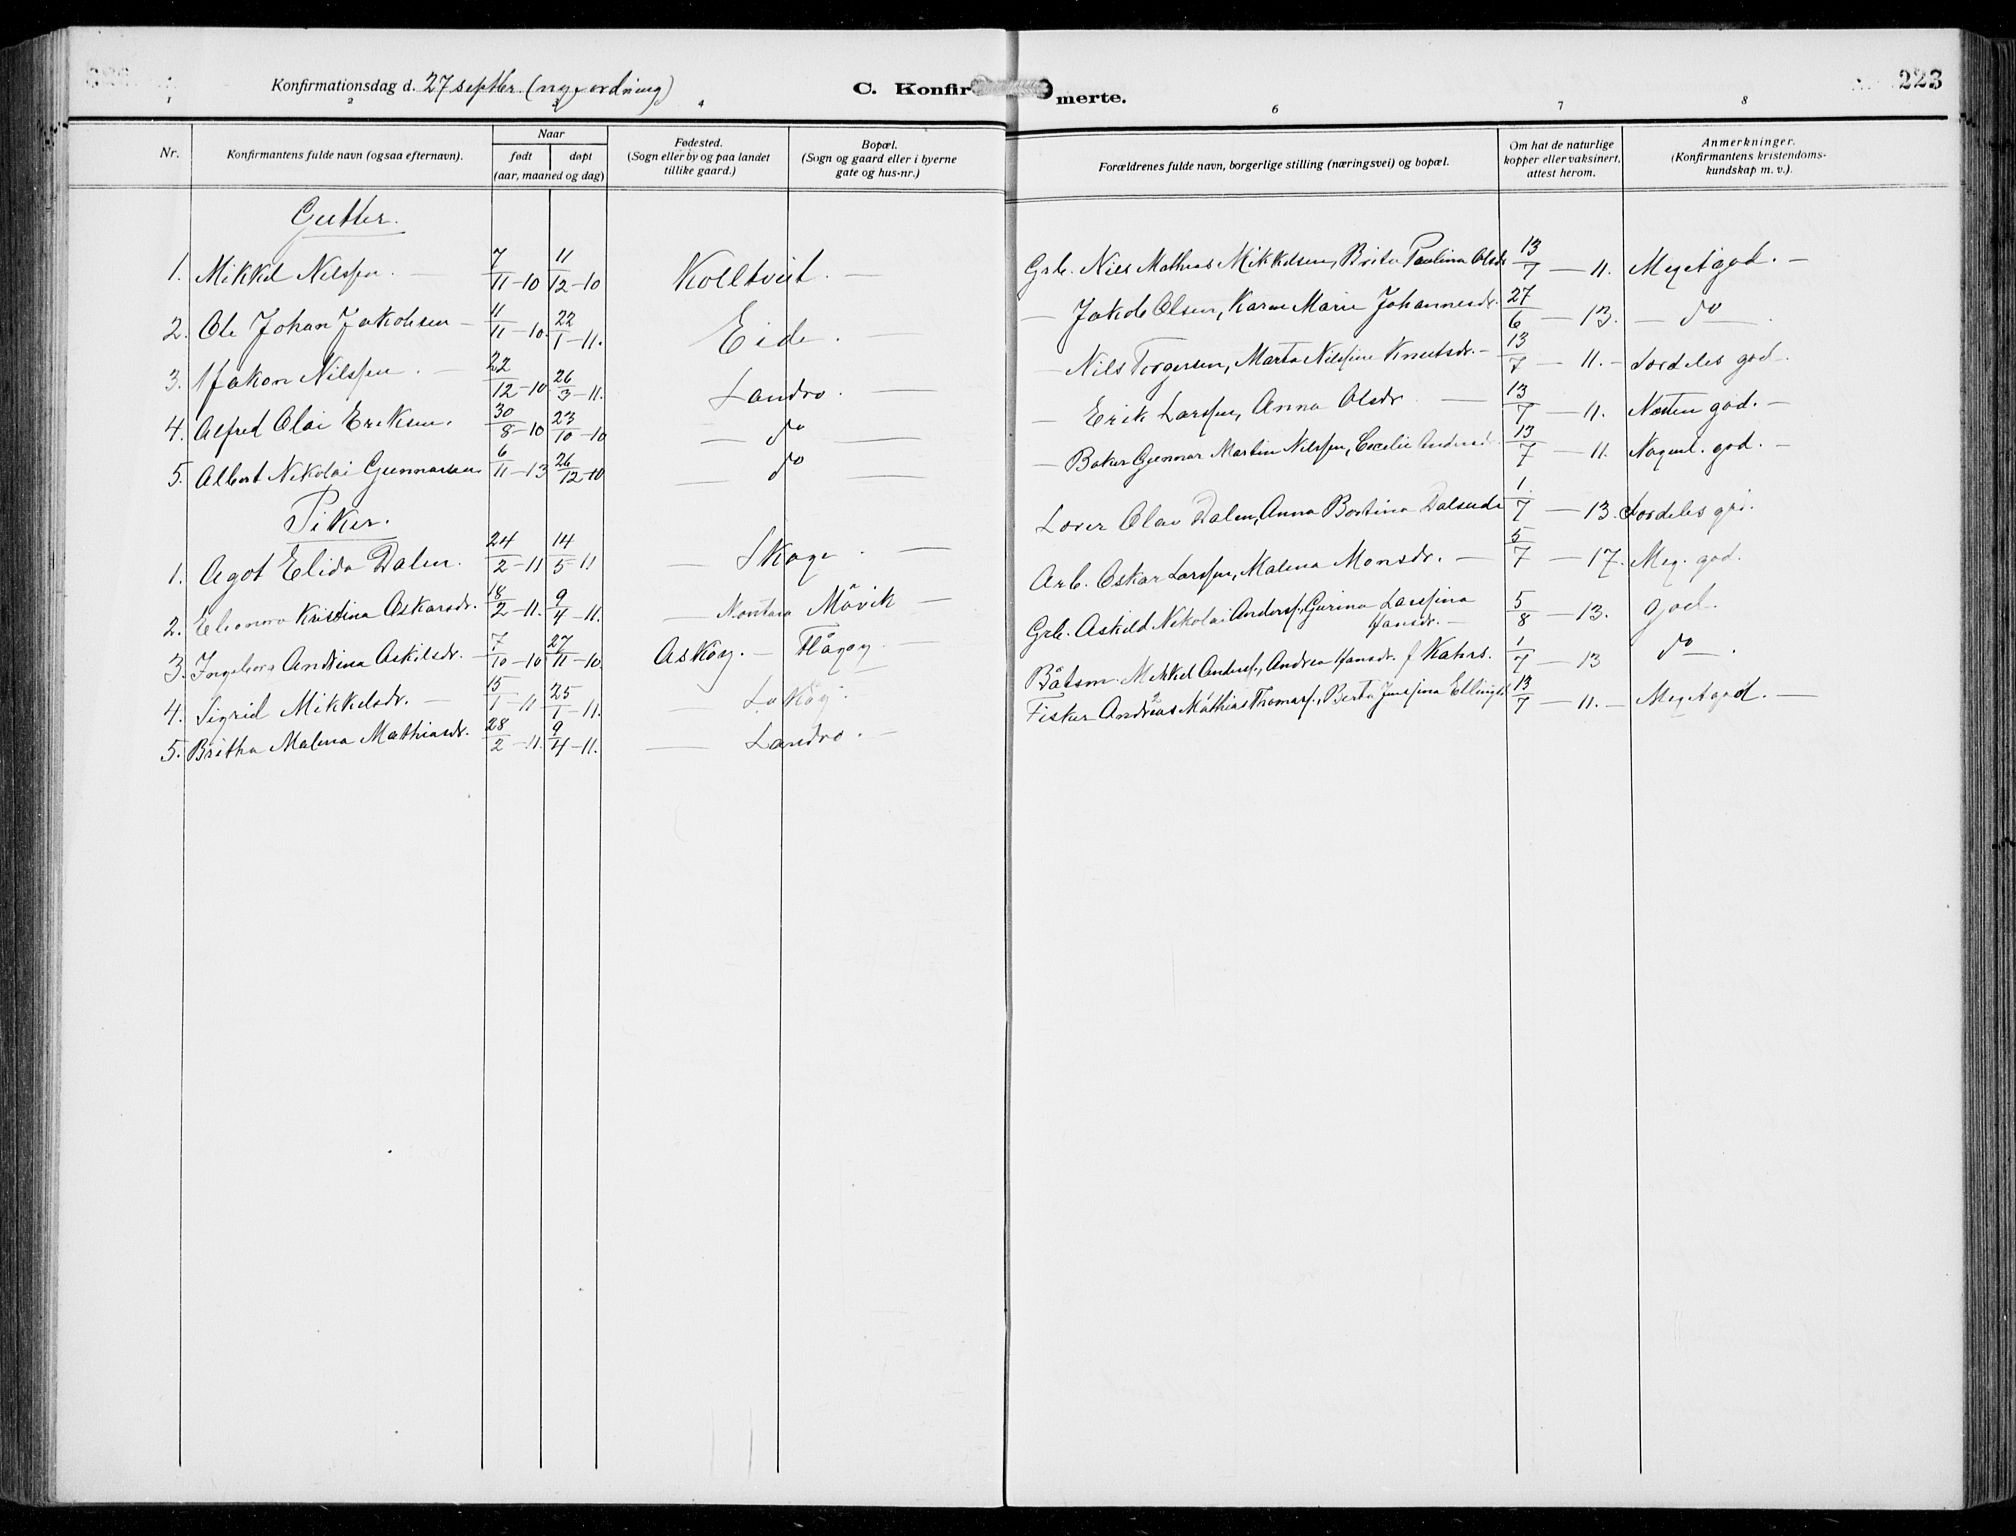 223
Konfirmationsdag d. 27 septbr. (nye ordning)
C. Konfirmerte.
1 2 3 4 6 7 8
Nr.
Konfirmantens fulde navn (ogsaa efternavn).
Naar
født døpt
(aar, maaned og dag)
Fødested.
(Sogn eller by og paa landet
tillike gaard.)
Bopæl.
(Sogn og gaard eller i byerne
gate og hus-nr.)
Forældrenes fulde navn, borgerlige stilling (næringsvei) og bopæl.
Om hat de naturlige
kopper eller vaksinert,
attest herom.
Anmerkninger.
(Konfirmantens kristendoms-
kundskap m. v.).
Gutter.
1. Mikkel Nilssen. — 7/11-10 11/12-10 Kolltveit. — Grb. Nils Mathias Mikkelsen, Brita Paulina Olsdr 13/7 — 11. Meget god. —
2. Ole Johan Jakobsen — 11/11-10. 22/1-11. Eide. — — Jakob Olsen, Karen Marie Johannesdr. 27/6 — 13. — do —.
3. Håkon Nilssen. — 22/12-10 26/3-11. Landro. — — Nils Torgersen, Marta Nilssine Knutsdr. — 13/7 — 11. — Særdeles god.
4. Alfred Olai Eriksen. 30/8-10 23/10-10 — do — — Erik Larssen, Anna Olsdr — 13/7 — 11. Næsten god. —
5. Albert Nikolai Gunnarsen 6/11-13 26/12-10 — do — — Baker Gunnar Martin Nilssen, Cecelie Andersd. 13/7 — 11. god. —
Piker.
1. Agot Elida Dalen. 24/2-11 14/5-11 — Skoge. — Lærer Olav Dalen, Anna Bortina 1/7 — 13. Særdeles
2. Eleonora Kristina Oskarsdr. 18/2-11. 9/4-11. — Møvik — Arb. Oskar Larssen, Malena Monsdr. — 5/7 — 17. Meg. god.
3. Ingeborg Andrina Askilsdr. — 7/10-10 27/11-10. Askøy. — Flågøy. — Grb. Askild Nikolai Anderss., Gurina Larssina
Hansdr. — 5/8 — 13. God.
4. Sigrid Mikkelsdr. — 15/1-11 25/1-11. — Lokøy. Båtsm. Mikkel Anderss., Andrea Hansdr. f Kahrs. 1/7 — 13 do —.
5. Britha Malena Mathiasdr. 28/2-11. 9/4-11. — Landro. — Fisker Andreas Mathias Thomass., Berta Jenssina Ellingsd 13/7 — 11. — Meget god. —